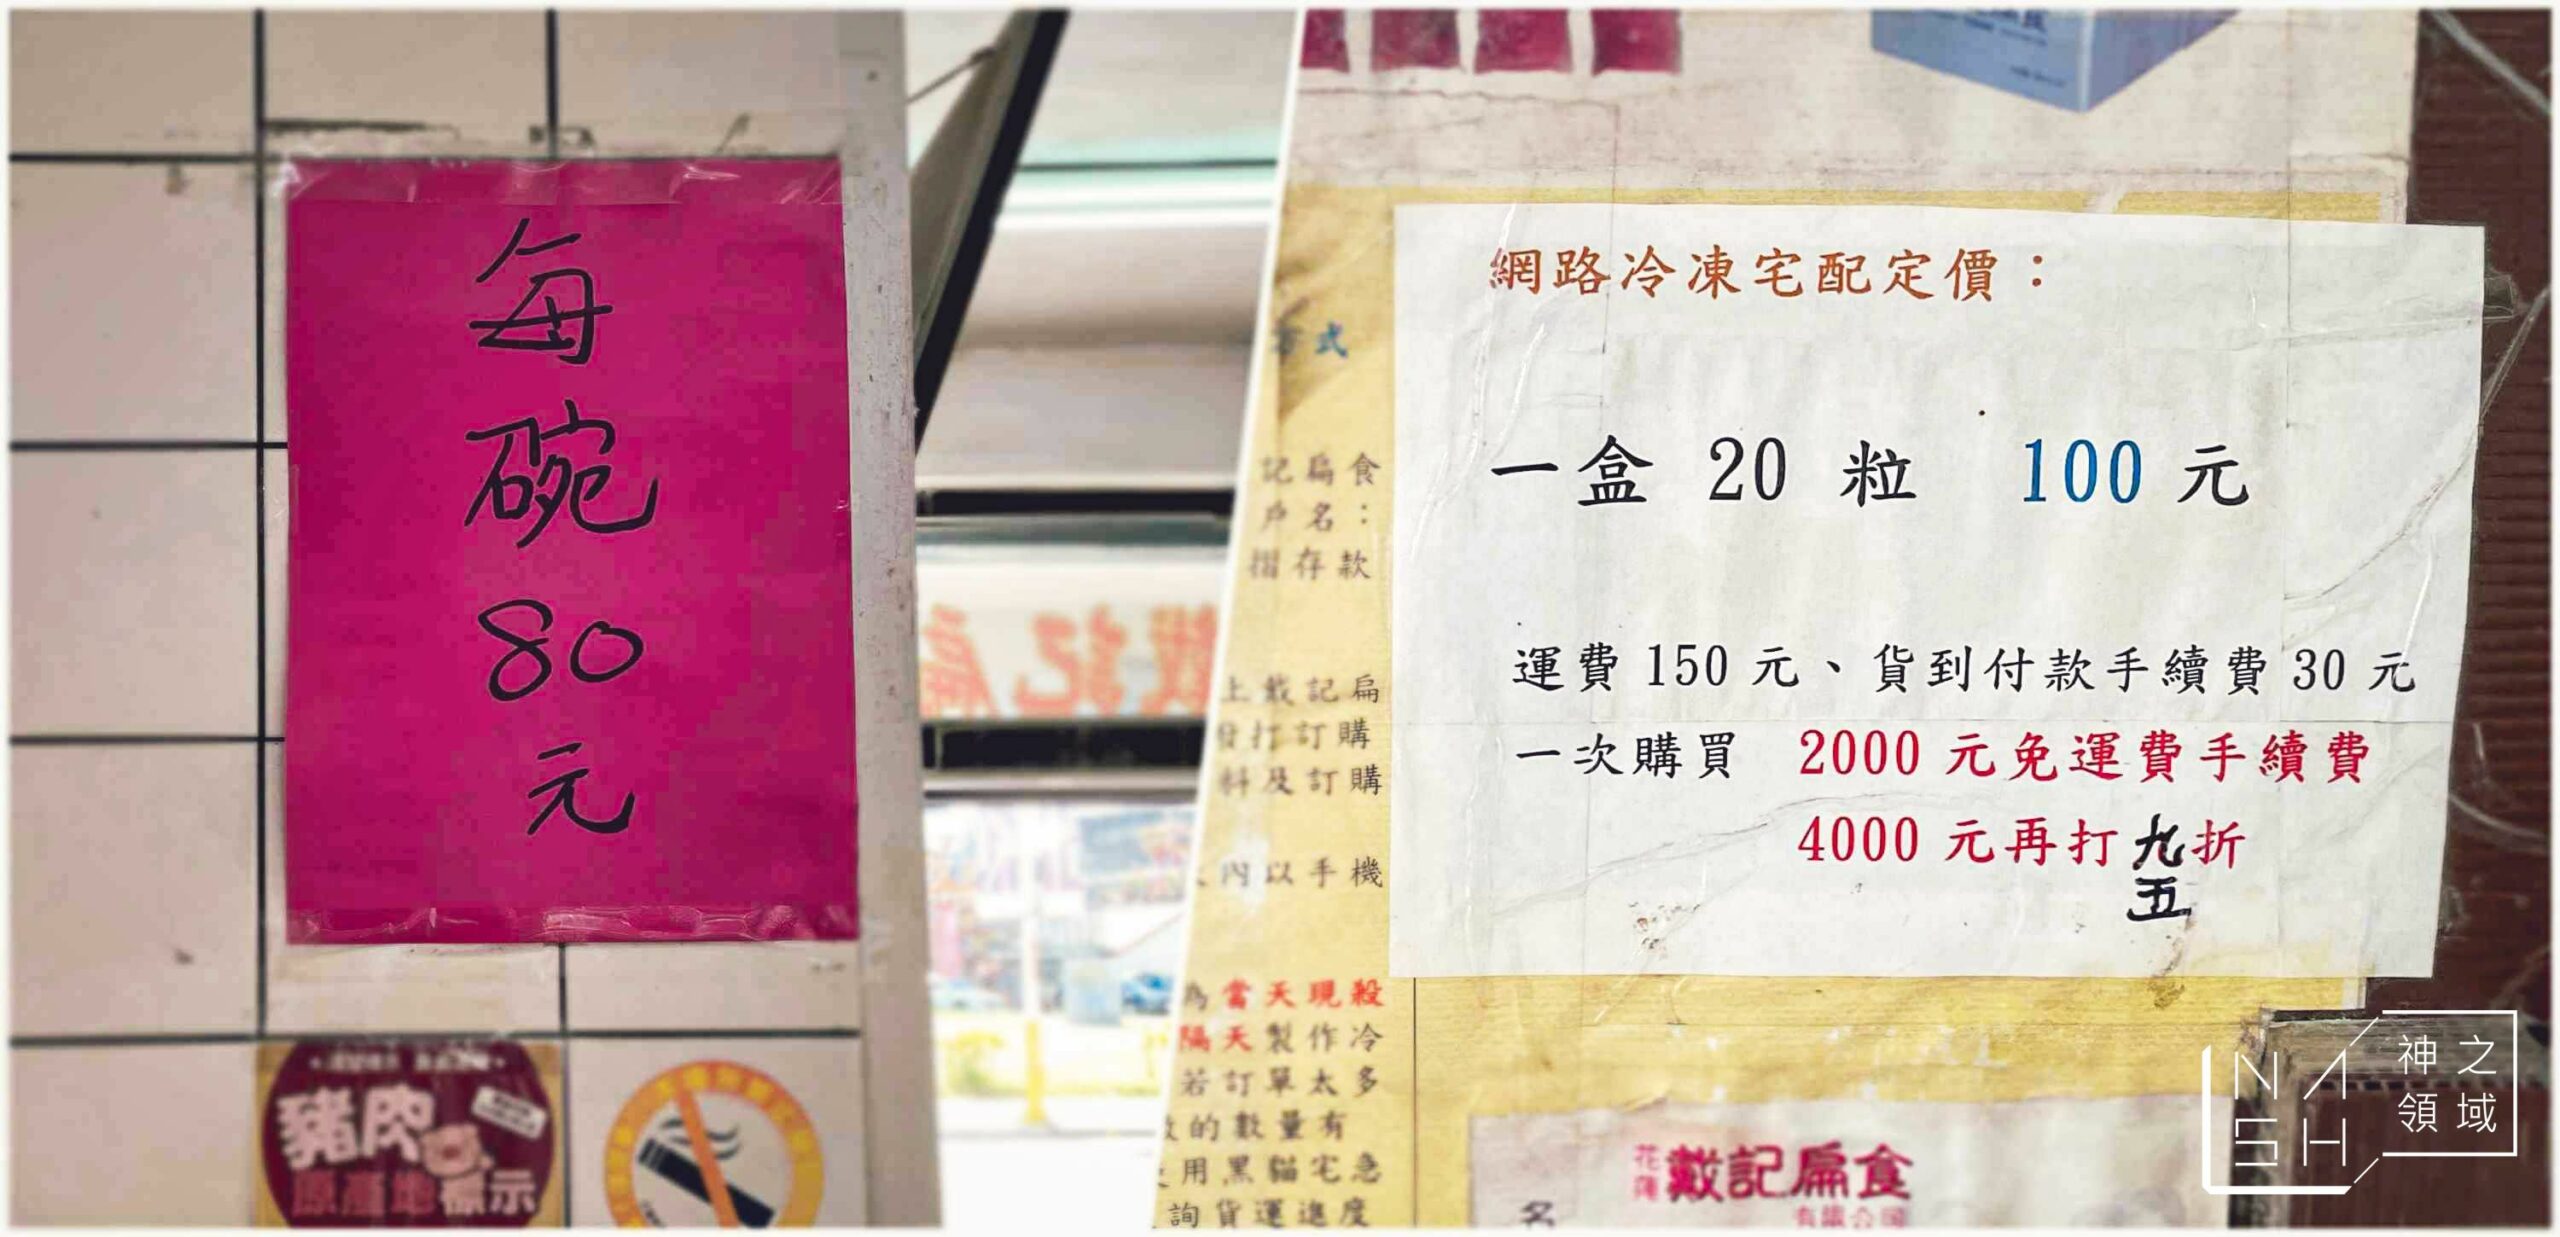 每
碗
80
元
豬肉
原產地標示
戴記扁
網路冷凍宅配定價：
一盒 20 粒 100 元
運費 150 元、貨到付款手續費 30 元
一次購買 2000 元免運費手續費
4000 元再打九折
五
式
記扁食
戶名：
摺存款
上戴記扁
打訂購
料及訂購
內以手機
為當天現殺
隔天製作冷
若訂單太多
的數量有
用黑貓宅急
詢貨運進度
花蓮戴記扁食
有限公司
名
NASH
神之
領域